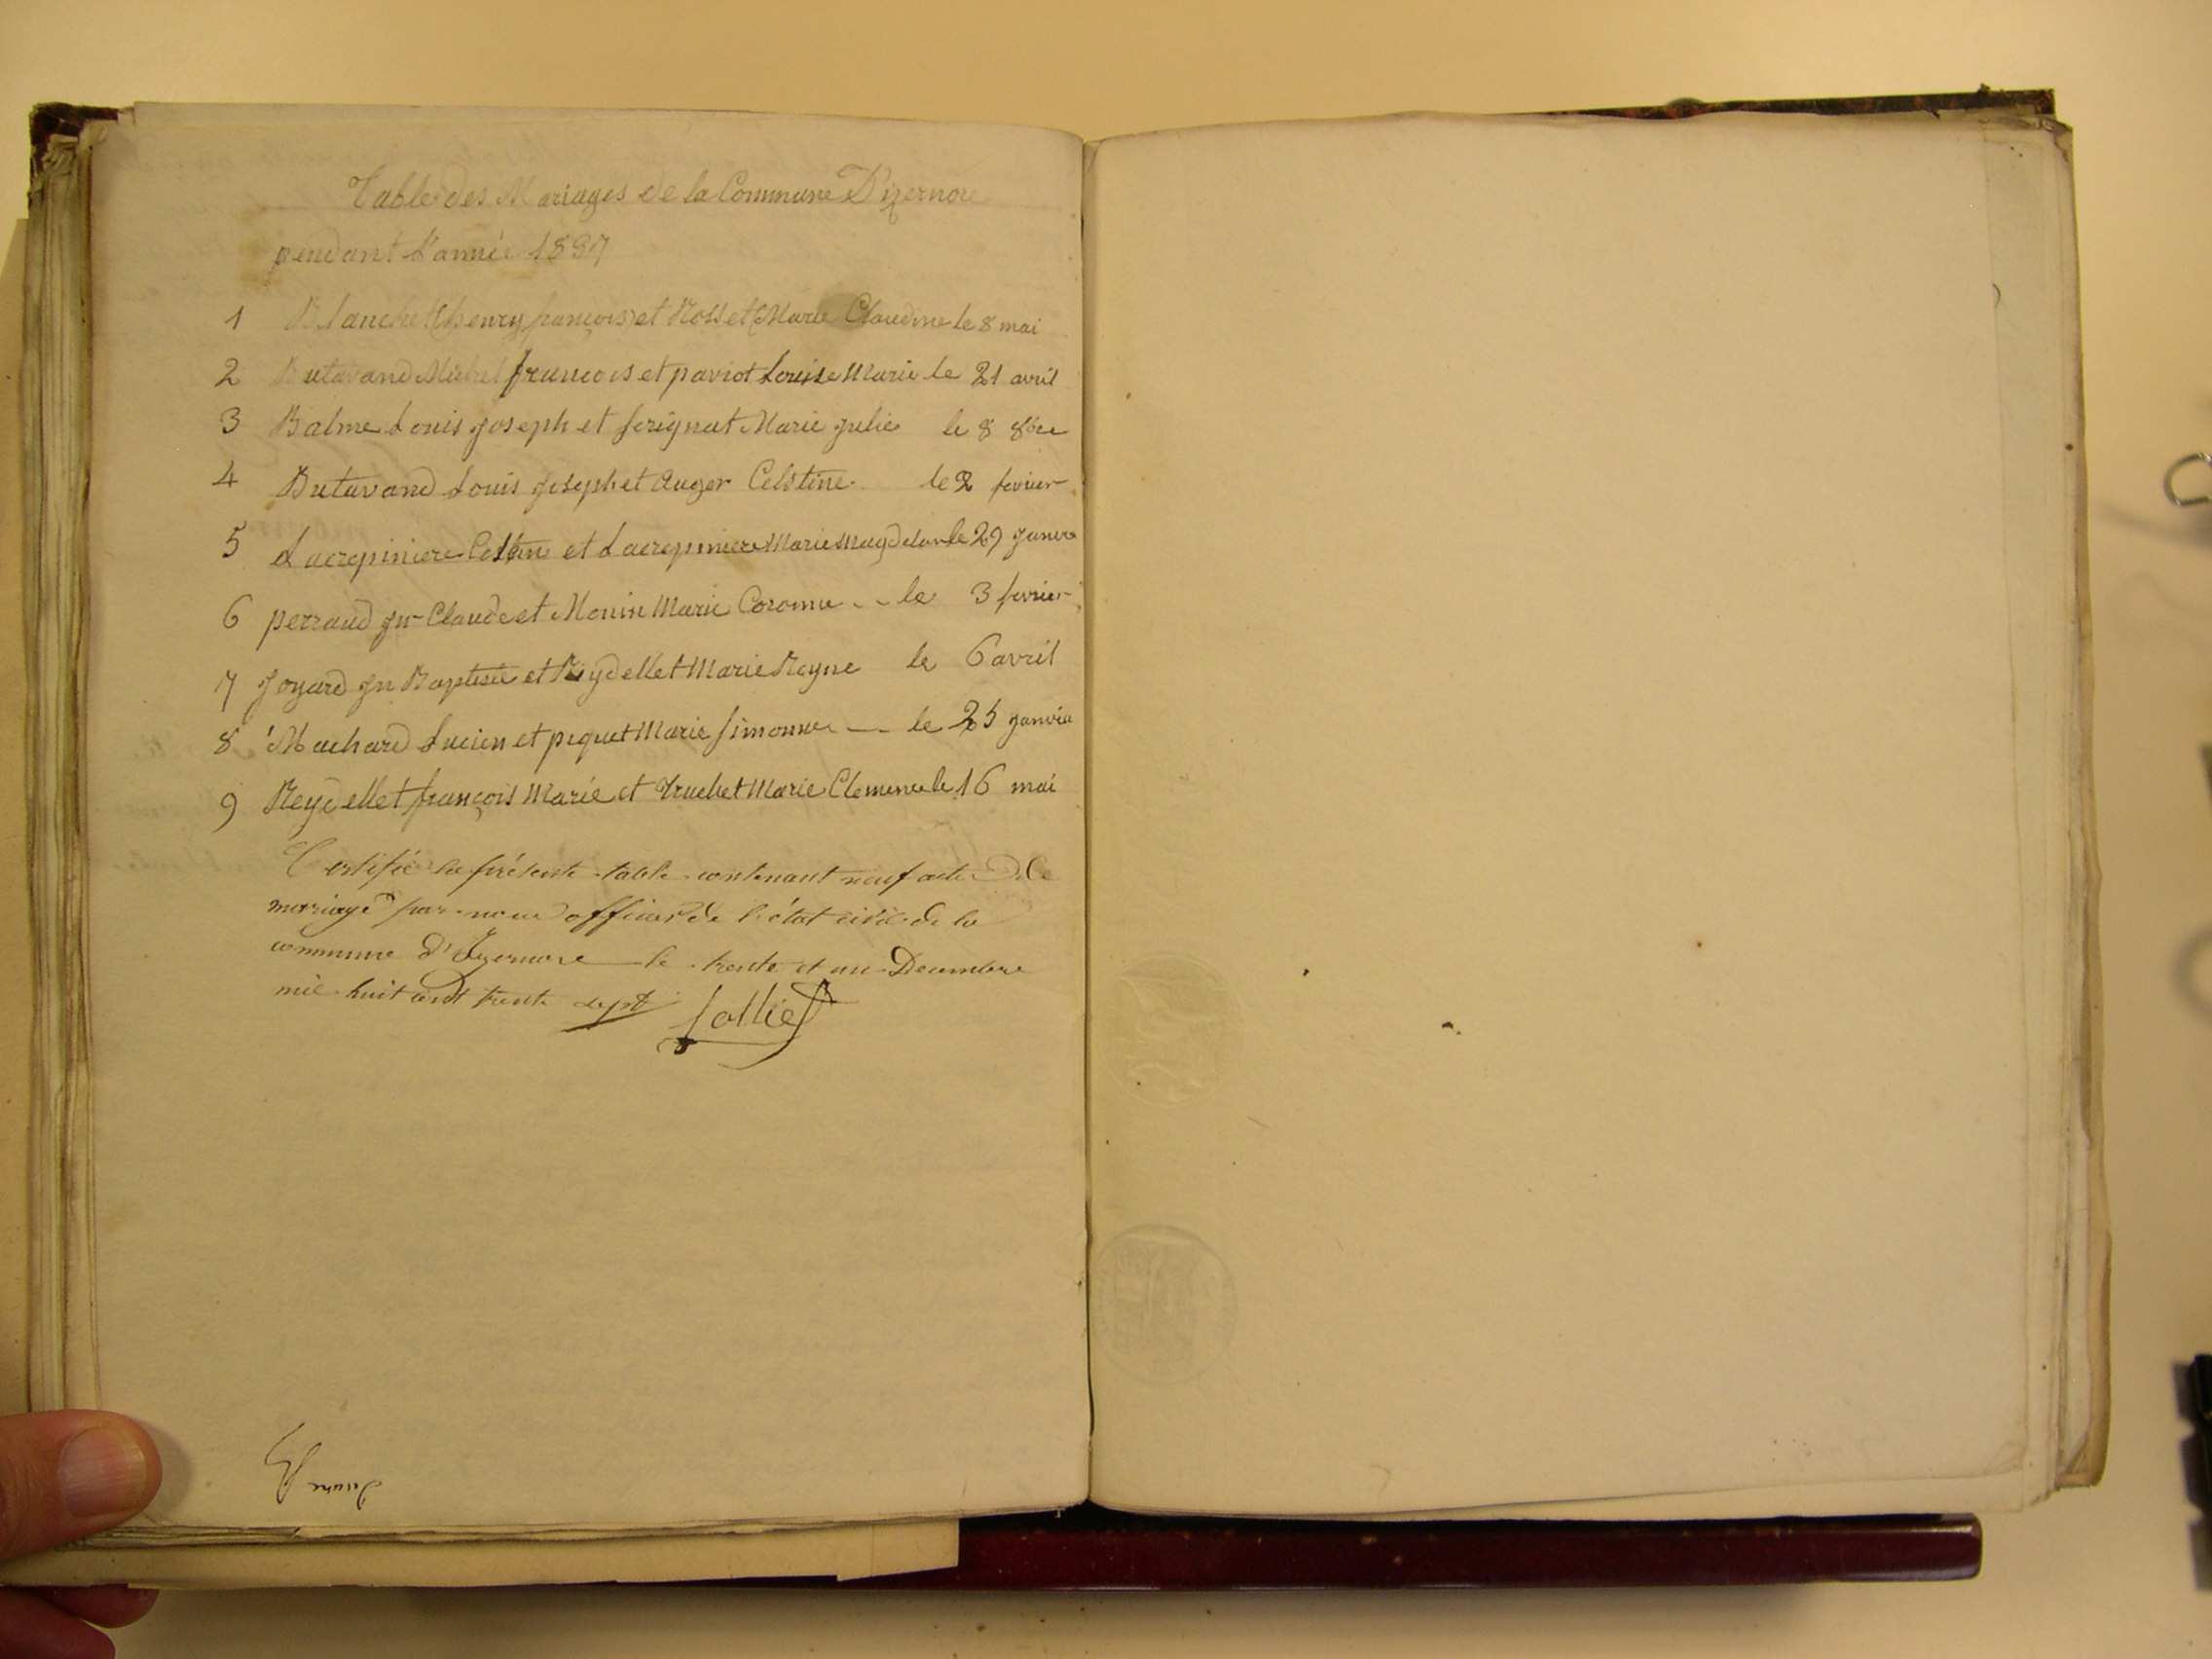 Table des Mariages de la Commune D'izernore
pendant L'année 1837
1 Blanchet (henry françois) et Rosset (Marie Claudine le 8 mai
2 Butavand Michel francois et paviot Louise Marie le 21 avril
3 Balme Louis joseph et serignat Marie julie le 8 8bre
4 Butavand Louis joseph et Auger Celstine le 2 fevrier
5 Lacrepiniere Celstin et Lacrepiniere Marie Magdelaine le 29 janvier
6 perraud jn Claude et Monin Marie le 3 fevrier
7 Joyard jn Baptiste et Reydellet Marie Reyne le 6 avril
8 Machard Lucien et piquet Marie simonne le 25 janvier
9 Reydellet françois Marie et truchet Marie Clemence le 16 mai
Certifié la présente table contenant neuf actes de
mariage par nous officier de l'état civil de la
commune d'Izernore le trente et un Decembre
mil huit cent trente sept